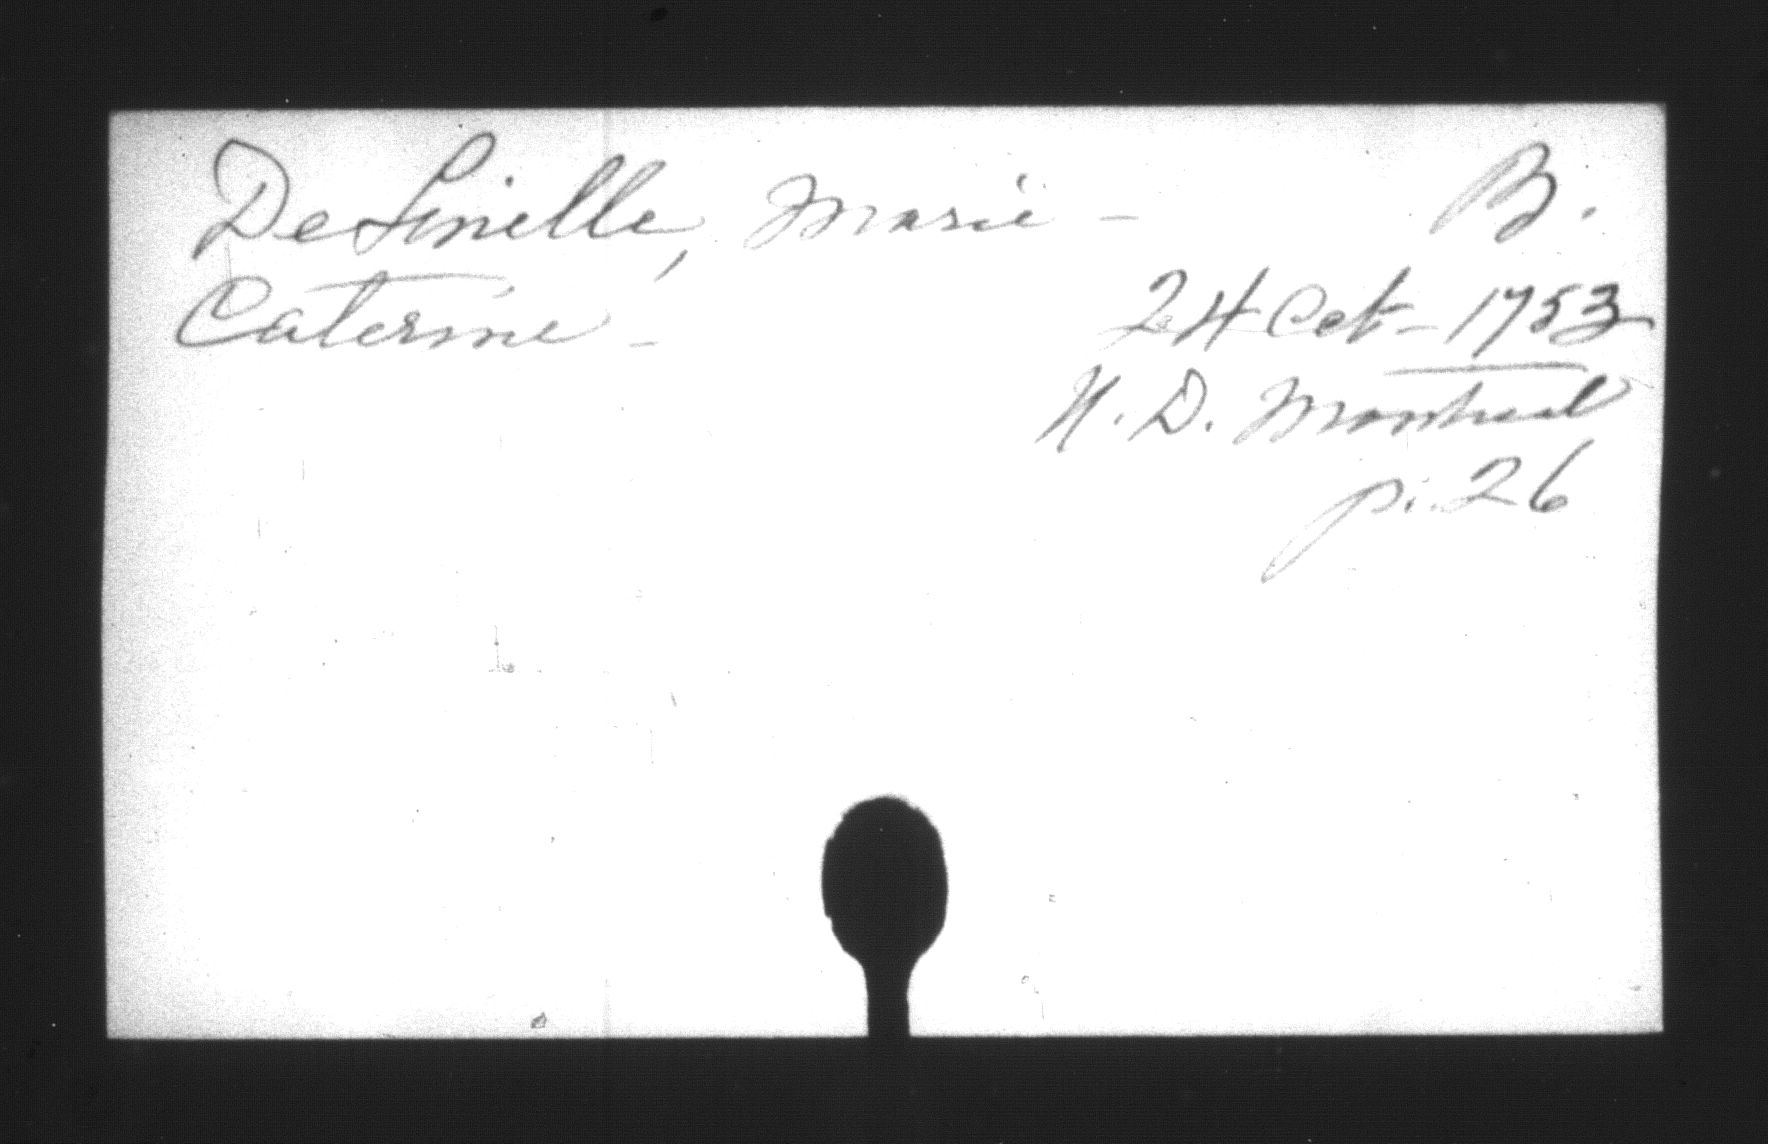 DeLinelle, Marie - B.
Caterine -
24 Oct - 1753
N. D. Montreal
p. 26